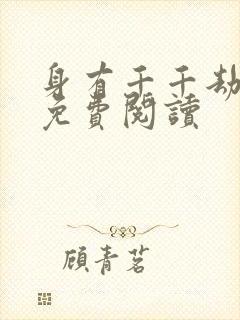 身有千千劫
免費閱讀
顧青茗